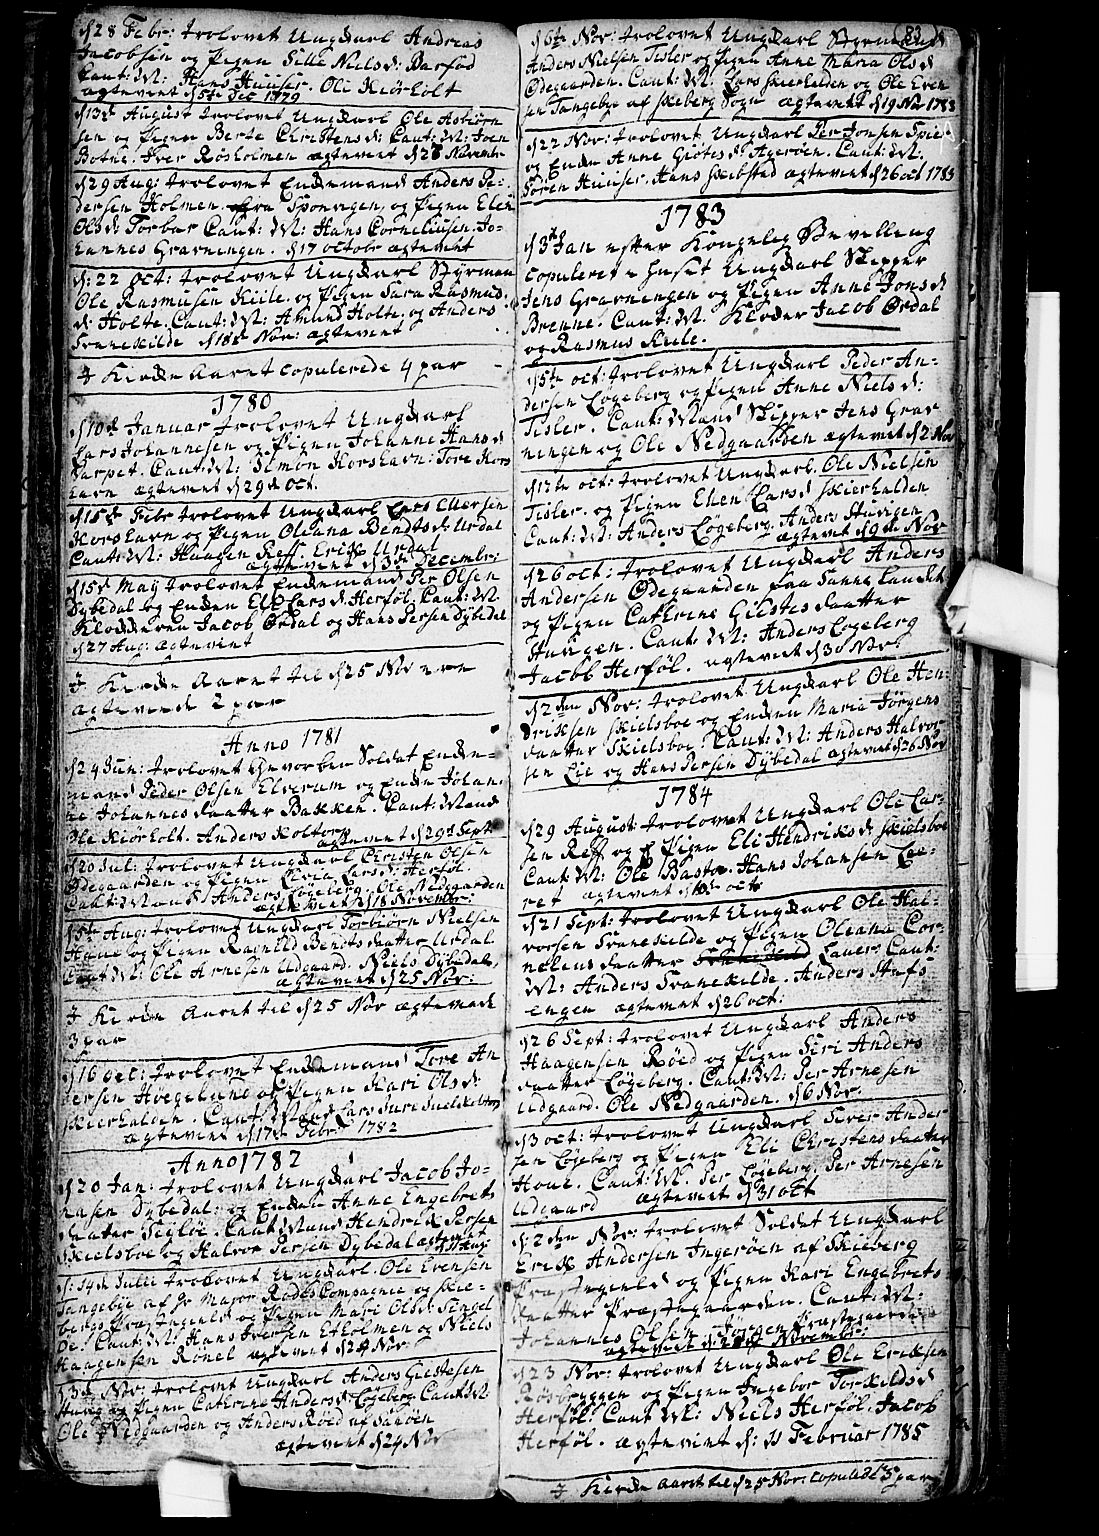 d 28 Febr: trolovet Ungkarl Andreas
Jacobsen og Pigen Sille Niels d: Barfod
Caut: M: Hans Huuser. Ole Kiörholt
ægteviet d 5te Dec 1779
d 13de August trolovet Ungkarl Ole Asbiörn
sen og Pigen Berte Christens d: Caut: M: Joen
Botne. Iver Rösholmen ægteviet d 28 Novembr
d 29 Aug: trolovet Enckemand Anders Pe-
dersen Holmen fra Sponvigen, og Pigen Elen
Ols d: Torbar Caut: M: Hans Corneliusen. Jo-
hannes Gravningen. d 17 octobr ægteviet
d: 22 Oct: trolovet Ungkarl Styrmand
Ole Rasmusen Kiile og Pigen Sara Rasmus
d: Holte. Caut: M: Amund Holte og Anders
Tranekilde d 18de Nov: ægteviet
J Kircke Aaret copulerede 4 par
1780
d 10de Januar trolovet Ungkarl
Lars Johannesen og Pigen Johanne Hans d
Papper. Caut: M: Simon Korshavn. Tore Kors
havn ægteviet d 29de Oct.
d 15de Febr trolovet Ungkarl Lars Ellersen
Korshavn og Pigen Oleana Bendts d: Urdal
Caut: M: Haagen Reff. Erik Urdal
ægteviet d 3de Decembr:
d 15de Maÿ trolovet Enckemand Per Olsen
Dybedal og Encken Else Lars d: Herföl. Caut: M:
Klockeren Jacob Ørdal og Hans Persen Dybedal
d 27 Aug: ægteviet
J Kircke Aaret til d 25 Nov ere
ægteviede 2 par
Anno 1781
d 24 Jun: trolovet Gevorben Soldat Encke-
mand Peder Olsen Elverum og Encke Johan-
ne Johannes daatter Bakken. Caut: Mænd
Ole Kiörholt. Anders Koltorp
ægteviet d 29de Sept
d 20 Jul: trolovet Ungkarl Christen Olsen
Ödegaarden og Pigen Livia Lars d: Herföl.
Caut: Mænd Anders Lögeberg. Ole Nedgaarden
ægteviet d 18 November:
d 5te Aug: trolovet Ungkarl Torbiörn Nielsen
Haue og Pigen Ragnild Bendts daatter Urdal
Caut: M: Ole Arnesen Udgaard. Niels Dybedal,
ægteviet d 25 Nov:
J Kircke Aaret til d 25 Nov ægteviede
3 par
d 16 Oct: trolovet Enckemand Tore An
dersen Höegelund og Pigen Kari Ols d:
Skierhalden. Caut: Mænd Lars
ægteviet d 17de Febr: 1782
Anno 1782
d 20 Jan: trolovet Ungkarl Jacob Jo-
hasen Dybedal: og Encke Anne Engebrets
daatter Seglöe. Caut: Mænd Hendrik Persen
Skielsboe og Halvor Persen Dybedal ægteviet
d: 14de Julii trolovet Ungkarl: Ole Evensen
Tangebÿe af Hr Major Rodes Compagnie og Skie-
bergs Præstegield og Pigen Mari Ols d: Singel
öe. Caut: M: Hans Iversen Etholmen og Niels
Haagensen Rönel ægteviet d 24 Nov:
d 3de Nov: trolovet Ungkarl Anders Giestesen
Huvig og Pigen Catherine Anders d: Lögeberg Caut: M:
Ole Nedgaarden og Anders Röed af Sandöen
ægteviet d 24 Nov
83
d 6te Nov: trolovet Ungkarl Styrmand
Anders Nielsen Tisler og Pigen Anne Maria Ols d
Ödegaarden. Caut: M: Lars Skierhalden og Ole Even
sen Tangebÿe af Skieberg Sogn ægteviet d 19 Nov 1783
d 22 Nov: trolovet Ungkarl Per Jonsen Spier
og Encke Anne Giötes d: Agerøen. Caut: M:
Sören Huuser. Hans Skiebsted ægteviet d 26 oct 1783
1783
d 3de Jan efter Kongelig Bevilling
copuleret i huset Ungkarl Skipper
Jens Gravningen og Pigen Anne Jons d
Brenne. Caut: M: Klocker Jacob Ørdal
og Rasmus Kiile.
d 5te oct: trolovet Ungkarl Peder An-
dersen Lögeberg og Pigen Anne Niels d:
Tisler. Caut: Mænd Skipper Jens Grav
ningen og Ole Nedgaarden ægteviet d 2 Nov
d 12te oct: trolovet Ungkarl. Ole Nielsen
Tisler. og Pigen Elen Lars d Skierhalden
Caut: M: Anders Lögeberg. Anders Huvigen
ægteviet d 9de Nov
d 26 oct: trolovet Ungkarl Anders
Andersen Ödegaarden paa Sanne Landet
og Pigen Cathrine Giestes daatter
Huvigen. Caut: M: Anders Lögeberg
Jacob Herföl. ægteviet d 30 Nov:
d 2den Nov: trolovet Ungkarl Ole Hen-
driksen Skielsboe og Encken Maria Jörgens
daatter Skielsboe. Caut: M: Anders Halvor
sen Lie og Hans Persen Dybedal ægteviet d 26 Nov
1784
d 29 August trolovet Ungkarl Ole Lar-
sen Reff og Pigen Eli Hendriks d: Skielsboe
Caut: M: Ole Bastø. Hans Johansen Lau-
ver ægteviet d 10de octo
d 21 Sept: trolovet Ungkarl Ole Hal-
vorsen Tranekilde og Pigen Oleana Cor-
nelius daatter Lauer Caut:
M: Anders Tranekilde. Anders Hufs
engen ægteviet d 26 oct:
d 26 Sept: trolovet Ungkarl Anders
Haagensen Röed og Pigen Siri Anders
daatter Lögeberg. Caut: M: Per Arnesen
Udgaard. Ole Nedgaarden. d 6 Nov.
d 3 oct: trolovet Ungkarl Iver Ander
sen Lögeberg og Pigen Eli Christens daatter
Houe. Caut: M. Per Lögeberg. Per Arnesen
Udgaard ægteviet d 31 oct
d: 2den Nov: trolovet Soldet Ungkarl
Erik Andersen Ingeröen af Skieberg
Præstegield og Pigen Kari Engebrets
daatter Præstegaarden. Caut: M:
Johannes Olsen Jörgen Præstegaarden
ægteviet d Novembr:
d 23 Nov: trolovet Ungkarl Ole Eriksen
Rösbryggen og Pigen Ingebor Torkilds d
Herföl. Caut M: Niels Herföl. Jacob
Herföl. ægteviet d: 11 Februar 1785
J Kircke Aaret til d 25 Nov: copulede 5 par